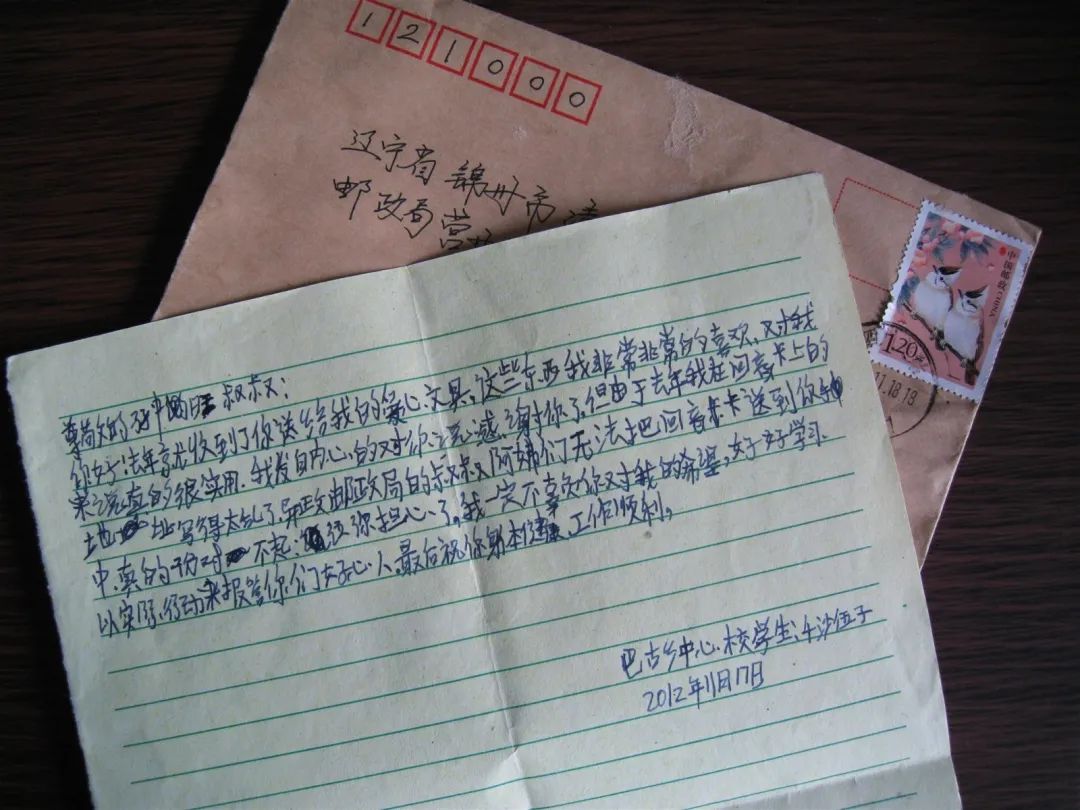 121000
辽宁省锦州市
邮政局营
中国邮政
CHINA
1.20元
尊敬的孙 叔叔：
你好！去年就收到了你送给我的爱心文具，这些东西我非常非常的喜欢，对我
来说真的很实用。我发自内心的对你说感谢你了，但由于去年我在回音卡上的
地址写得太乱了导致邮政局的叔叔阿姨们无法把回音卡送到你
中，真的 对不起，还 你担心了。我一定不辜负你对我的希望，好好学习
以实际行动来报答你们好心人，最后祝你身体健康，工作顺利。
巴古乡中心校学生：
2012年11月17日